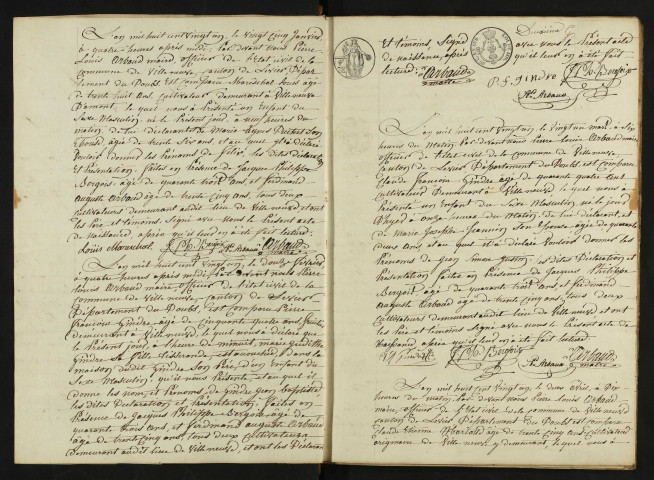 L'an mil huit cent vingt un, le vingt cinq Janvier
à quatre heures après midi, par devant nous Pierre
Louis Arbaud maire, officier de l'état civil de la
commune de Villeneuve, canton de Levier Dépar-
tement du Doubs est comparu Maréchal Louis âgé
de trente huit ans, cultivateur demeurant à Villeneuve
D'amont, le quel nous a Présenté un Enfant du
Sexe Masculin, né le Présent jour, à neuf heures du
matin, de lui déclarant et de Marie Agnès
Epouse, âgée de trente six ans, et au quel il a déclaré
vouloir donner les Prénoms de les dites déclaration
et Présentation, faites en Présence de Jacques Philippe
Bergoin, âgé de quarante trois ans et ferdinand
auguste Arbaud âgé de trente cinq ans, tous deux
cultivateurs demeurant audit lieu de Villeneuve et ont
les Père et témoins Signé avec nous le Présent acte
de naissance, après qu'il leur en a été fait lecture.
Louis Marechal Arbaud
maire
L'an mil huit cent vingt un, le douze
à quatre heures après midi, par devant nous Pierre
Louis Arbaud maire, officier de l'état civil de la
commune de Villeneuve, canton de Levier
Département du Doubs, est comparu Pierre
françois Gindre, âgé de cinquante quatre ans,
demeurant à Villeneuve, le quel nous a déclaré que
le Présent jour, à heure de minuit, marie
Gindre Sa fille est accouchée, Dans la
maison dudit Gindre Son Père, d'un Enfant du
Sexe Masculin, qu'il nous Présente et au quel il
donne les nom et Prénoms de Gindre Jean Baptiste
les dites Déclaration et Présentation faites en
Présence de Jacques Philippe Bergoin âgé de
quarante trois ans, et ferdinand auguste Arbaud
âgé de trente cinq ans, tous deux cultivateurs
demeurant audit lieu de Villeneuve, et ont les Déclarant
et témoins, Signé
de naissance, après
lecture. Arbaud
maire
avec nous le Présent acte
qu'il leur en a été fait
P. F. GINDRE
L'an mil huit cent vingt un, le vingt un mars, à six
heures du matin par devant nous Pierre Louis Arbaud maire
officier de l'état civil de la commune de Villeneuve
Canton de Levier Département du Doubs est comparu
Claude françois Gindre âgé de quarante quatre ans
cultivateur Demeurant à Villeneuve, le quel nous a
Présenté un Enfant du Sexe Masculin, né le jour
d'hier à onze heures du Matin, de lui déclarant, et
de Marie Josephe Jeannin Son Epouse âgée de quarante
deux ans, et au quel il a déclaré vouloir donner les
Prénoms de Jean les dites Déclaration et
Présentation faites en Présence de Jacques Philippe
Bergoin âgé de quarante trois ans, et ferdinand
Auguste Arbaud âgé de trente cinq ans, tous deux
cultivateurs demeurant audit lieu de Villeneuve, et ont
les Père et témoins Signé avec nous le Présent acte de
naissance, après qu'il leur en a été fait lecture.
Arbaud
maire
L'an mil huit cent vingt un, le deux à dix
heures du matin, par devant nous Pierre Louis Arbaud
maire, officier de l'état civil de la commune de Villeneuve
canton de Levier Département du Doubs est comparu
Claude Etienne âgé de trente cinq ans cultivateur
originaire de Villeneuve, y demeurant, le quel nous a